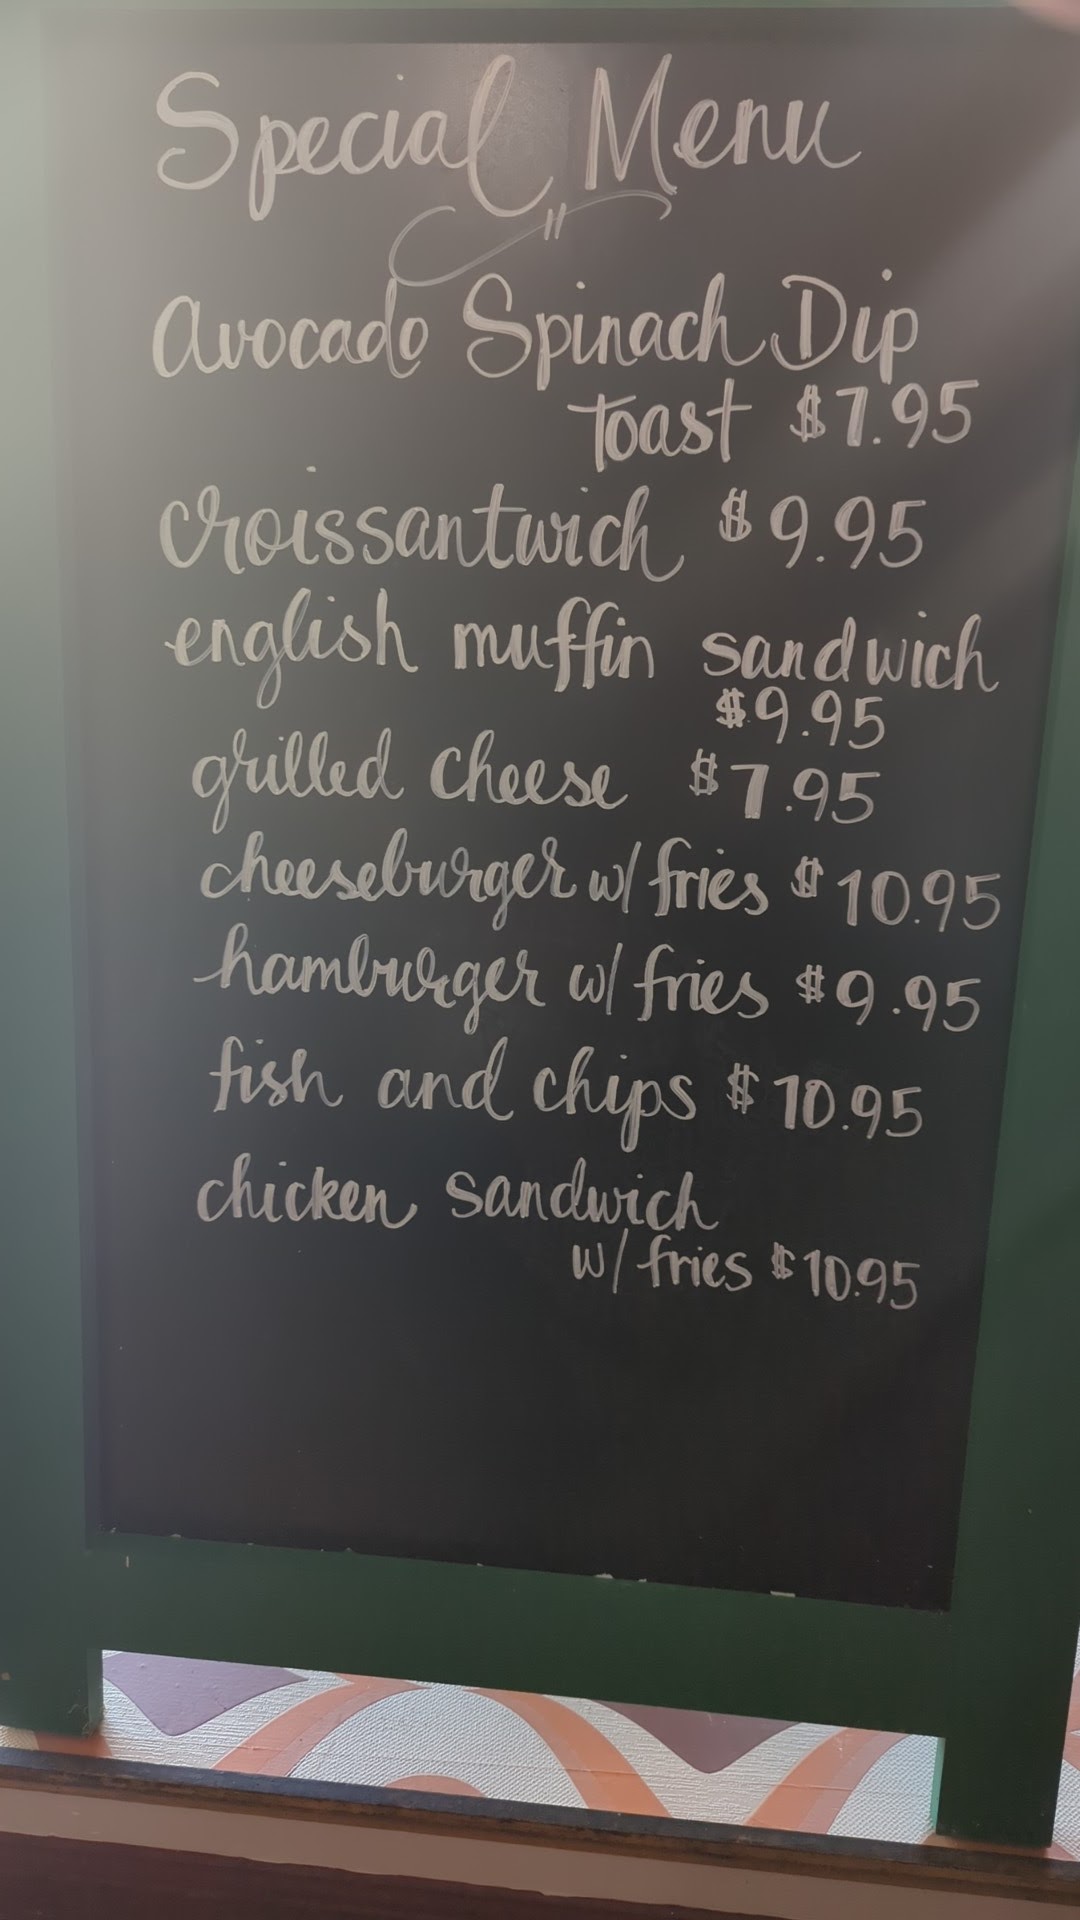 Special Menu
Avocado Spinach Dip
Toast $7.95
croissantwich $9.95
english muffin sandwich
$9.95
grilled cheese $7.95
cheeseburger w/ fries $10.95
hamburger w/ fries $9.95
fish and chips $10.95
chicken sandwich
w/ fries $10.95